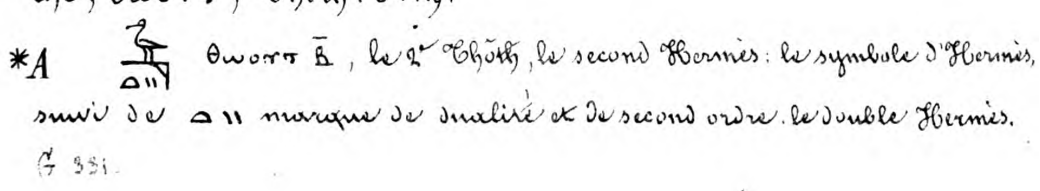 *A 𓅝𓏏𓏭 ⲑⲱⲟⲩⲧ ⲃ̄, le 2e Thôth, le second Hermès: le symbole d'Hermès,
suivi de 𓏏𓏭 marque de dualité et de second ordre. le double Hermès.
G 331.